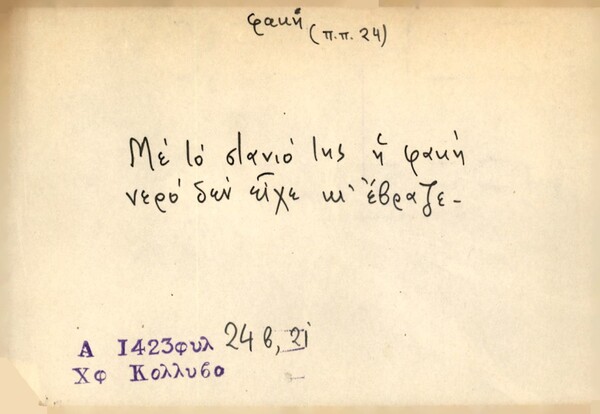 φακή (π.π. 24)
Μέ τό στανιό της ἡ φακή
νερό δέν εἶχε κι' ἔβραζε -
Α 1423φυλ 24β, 21
Χφ Κολλυβο